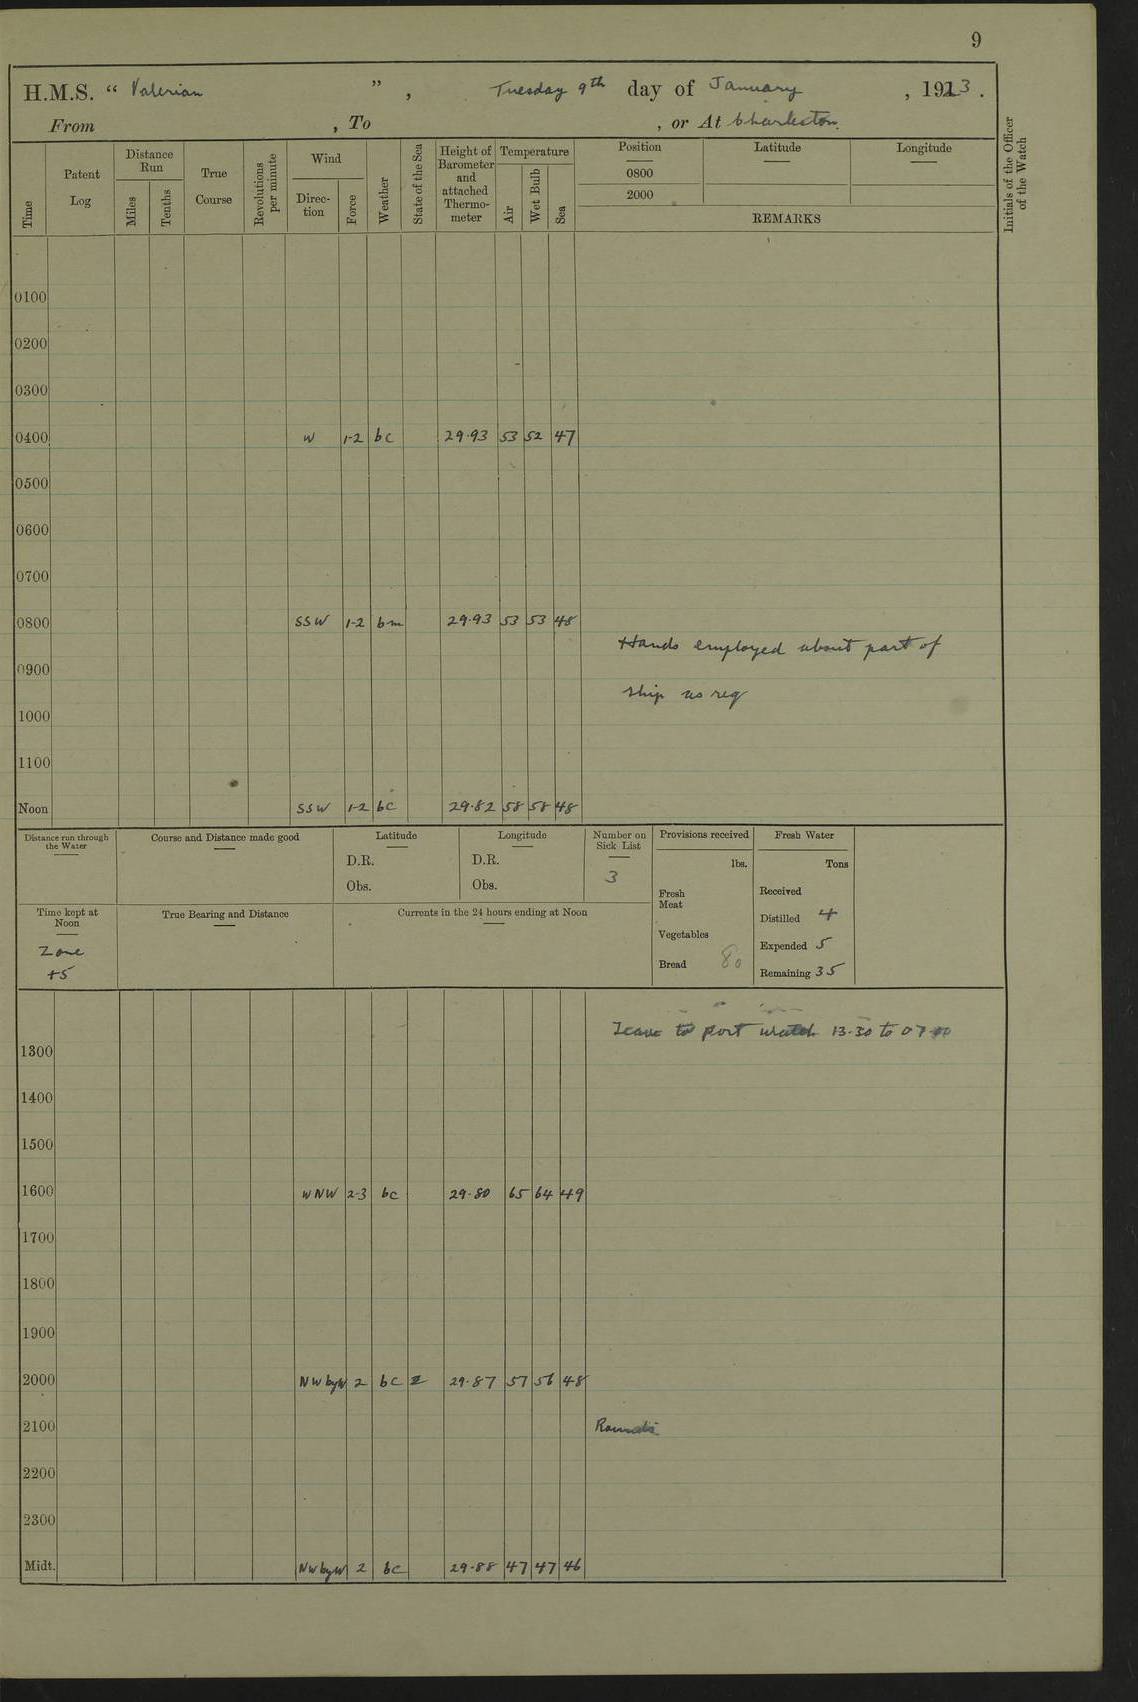 9
H.M.S. " Valerian " , Tuesday 9th day of January , 1923 .
From , To , or At Charleston.
Time
Patent Log
Distance Run
Miles
Tenths
True Course
Revolutions per minute
Wind
Direction
Force
Weather
State of the Sea
Height of Barometer and attached Thermometer
Temperature
Air
Wet Bulb
Sea
Position
0800
2000
Latitude
Longitude
REMARKS
Initials of the Officer of the Watch
0100
0200
0300
0400 W 1-2 bc 29.93 53 52 47
0500
0600
0700
0800 SSW 1-2 bm 29.93 53 53 48
Hands employed about part of
0900
ship as req
1000
1100
Noon SSW 1-2 bc 29.82 58 58 48
Distance run through the Water
Course and Distance made good
Latitude
D.R.
Obs.
Longitude
D.R.
Obs.
Number on Sick List
3
Provisions received
lbs.
Fresh Meat
Vegetables
Bread 80
Fresh Water
Tons
Received
Distilled 4
Expended 5
Remaining 35
Time kept at Noon
Zone
+5
True Bearing and Distance
Currents in the 24 hours ending at Noon
Leave to port watch 13-30 to 07-00
1300
1400
1500
1600 WNW 2-3 bc 29.80 65 64 49
1700
1800
1900
2000 NWbyW 2 bc 2 29.87 57 56 48
2100 Rounds
2200
2300
Midt. NWbyW 2 bc 29.88 47 47 46